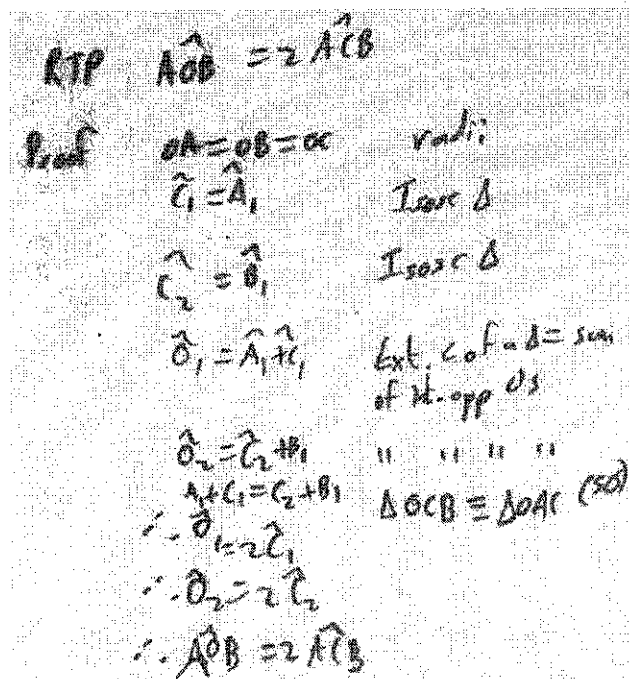 RTP AÔB = 2 AĈB
Proof OA = OB = OC radii
Ĉ₁ = Â₁ Isosc Δ
Ĉ₂ = B̂₁ Isosc Δ
Ô₁ = Â₁ + Ĉ₁ Ext. ∠ of a Δ = sum
of int. opp
Ô₂ = Ĉ₂ + B₁ " " " "
A₁ + C₁ = C₂ + B₁ Δ OCB ≡ Δ OAC
∴ Ô₁ = 2Ĉ₁
∴ Ô₂ = 2Ĉ₂
∴ AÔB = 2 AĈB